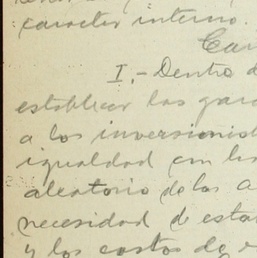 caracter interno.
Car
I.- Dentro d
establecer las gara
a los inversionist
igualdad con las
aleatorio de los a
necesidad de esta
y los costos de